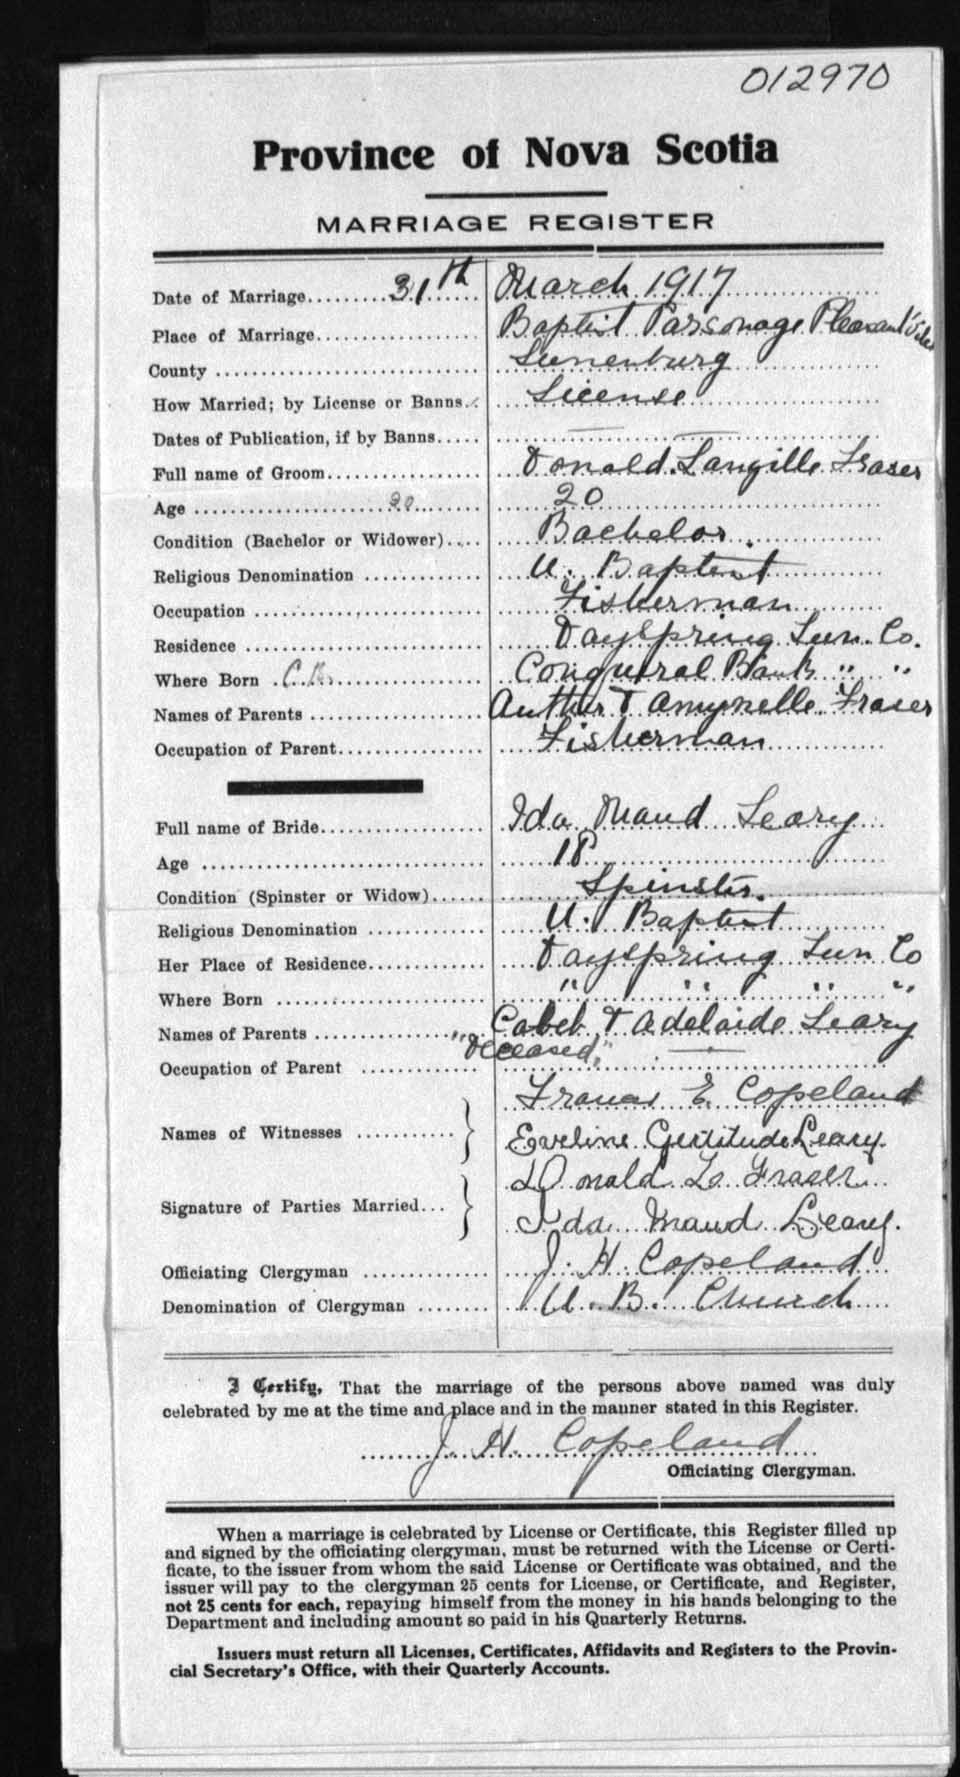 012970
Province of Nova Scotia
MARRIAGE REGISTER
Date of Marriage 31th March 1917
Place of Marriage Baptist Parsonage Pleasant
County Lunenburg
How Married; by License or Banns License
Dates of Publication, if by Banns
Full name of Groom Donald Langille Fraser
Age 20 20
Condition (Bachelor or Widower) Bachelor.
Religious Denomination U. Baptist
Occupation Fisherman
Residence Dayspring Lun. Co.
Where Born C.B. Conqueral Bank " "
Names of Parents Authur & Amynelle Fraser
Occupation of Parent Fisherman
Full name of Bride Ida Maud Leary
Age 18
Condition (Spinster or Widow) Spinster.
Religious Denomination U. Baptist
Her Place of Residence Dayspring Lun Co
Where Born " " " "
Names of Parents Caleb & Adelaide Leary
"deceased"
Occupation of Parent
Names of Witnesses Frances E. Copeland
Eveline Gertitude Leary.
Signature of Parties Married Donald L. Fraser
Ida Maud Leary.
Officiating Clergyman J. H. Copeland
Denomination of Clergyman U. B. Church
I Certify, That the marriage of the persons above named was duly
celebrated by me at the time and place and in the manner stated in this Register.
J. H. Copeland
Officiating Clergyman.
When a marriage is celebrated by License or Certificate, this Register filled up
and signed by the officiating clergyman, must be returned with the License or Certi-
ficate, to the issuer from whom the said License or Certificate was obtained, and the
issuer will pay to the clergyman 25 cents for License, or Certificate, and Register,
not 25 cents for each, repaying himself from the money in his hands belonging to the
Department and including amount so paid in his Quarterly Returns.
Issuers must return all Licenses, Certificates, Affidavits and Registers to the Provin-
cial Secretary's Office, with their Quarterly Accounts.